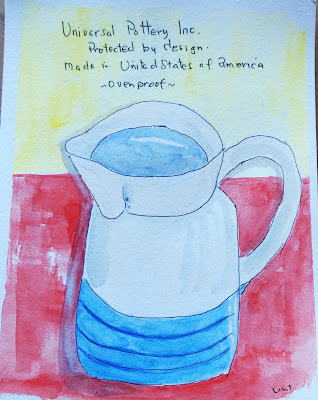 Universal Pottery Inc.
Protected by design.
made in United States of america
~ovenproof~